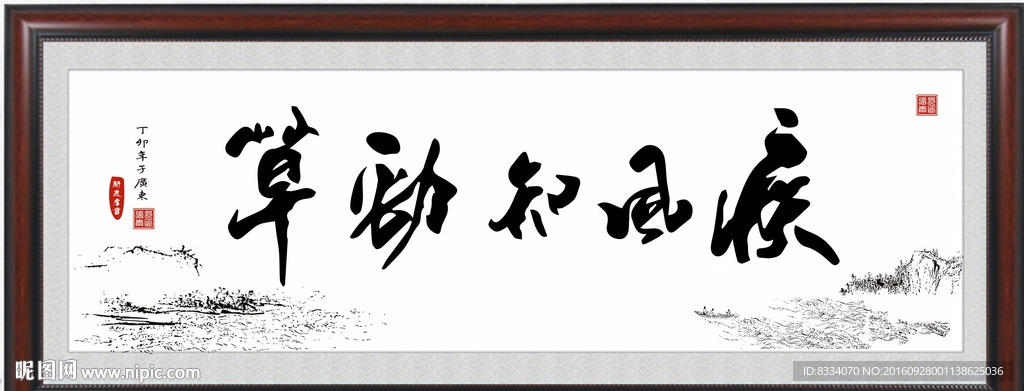 疾风知劲草
丁卯年于廣東
昵图网 www.nipic.com
ID:8334070 NO:20160928001138625036